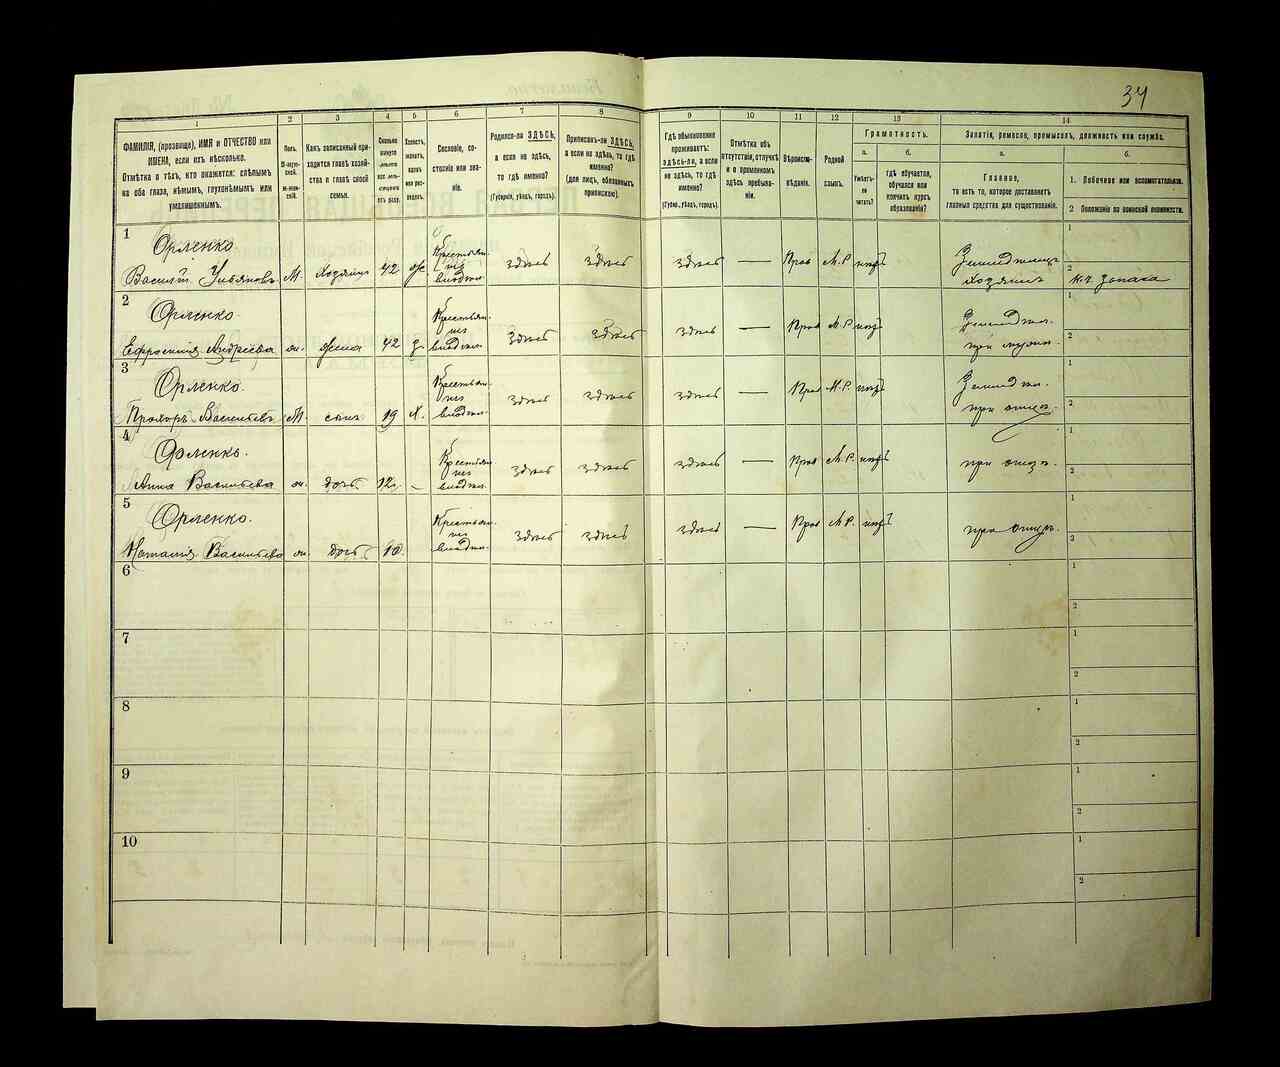 34
1
2
3
4
5
6
7
8
9
10
11
12
13
14
ФАМИЛІЯ, (прозвище), ИМЯ и ОТЧЕСТВО или
ИМЕНА, если ихъ нѣсколько.
Отмѣтка о тѣхъ, кто окажется: слѣпымъ
на оба глаза, нѣмымъ, глухонѣмымъ или
умалишеннымъ.
Полъ.
М-муж-
ской.
Ж-жен-
скій.
Какъ записанный при-
ходится главѣ хозяй-
ства и главѣ своей
семьи.
Сколько
минуло
лѣтъ
отъ роду.
Холостъ,
женатъ,
вдовъ
или раз-
веденъ.
Сословіе, со-
стояніе или зва-
ніе.
Родился-ли ЗДѢСЬ,
а если не здѣсь,
то гдѣ именно?
(Губернія, уѣздъ, городъ).
Приписанъ-ли ЗДѢСЬ,
а если не здѣсь, то гдѣ
именно?
(для лицъ, обязанныхъ
припискою).
Гдѣ обыкновенно
проживаетъ:
здѣсь-ли, а если
не здѣсь, то гдѣ
именно?
(Губер., уѣздъ, городъ).
Отмѣтка объ
отсутствіи, отлучкѣ
и о временномъ
здѣсь пребыва-
ніи.
Вѣроиспо-
вѣданіе.
Родной
языкъ.
Грамотность.
а.
Умѣетъ-
ли
читать?
б.
гдѣ обучается,
обучался или
кончилъ курсъ
образованія?
Занятіе, ремесло, промыселъ, должность или служба.
а.
Главное,
то есть то, которое доставляетъ
главныя средства для существованія.
б.
1. Побочное или вспомогательное.
2 Положеніе по воинской повинности.
1
Орленко
Василій Ульяновъ М. хозяинъ 42 ж Крестьян. изъ владѣл. здѣсь здѣсь здѣсь — Прав М.Р. нѣтъ Земледѣлецъ хозяинъ
1
2
2
Орленко
Ефросинія Андреева ж. жена 42 з Крестьян. изъ владѣл. здѣсь здѣсь здѣсь — Прав М.Р. нѣтъ Земледѣл. при мужѣ.
1
2
3
Орленко
Прохоръ Васильевъ М. сынъ 19 х. Крестьян. изъ владѣл. здѣсь здѣсь здѣсь — Прав М.Р. нѣтъ Земледѣл. при отцѣ.
1
2
4
Орленко.
Анна Васильева ж. дочь 12 – Крестьян. изъ владѣл. здѣсь здѣсь здѣсь — Прав М.Р. нѣтъ при отцѣ.
1
2
5
Орленко.
Наталія Васильева ж. дочь 10 Крестьян. изъ владѣл. здѣсь здѣсь здѣсь — Прав М.Р. нѣтъ при отцѣ.
1
2
6
1
2
7
1
2
8
1
2
9
1
2
10
1
2